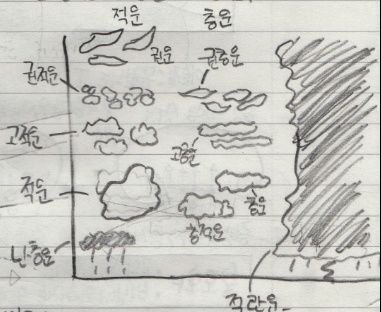 적운 층운
권운
권층운
권적운
고적운
고층운
적운
층운
층적운
난층운
적란운